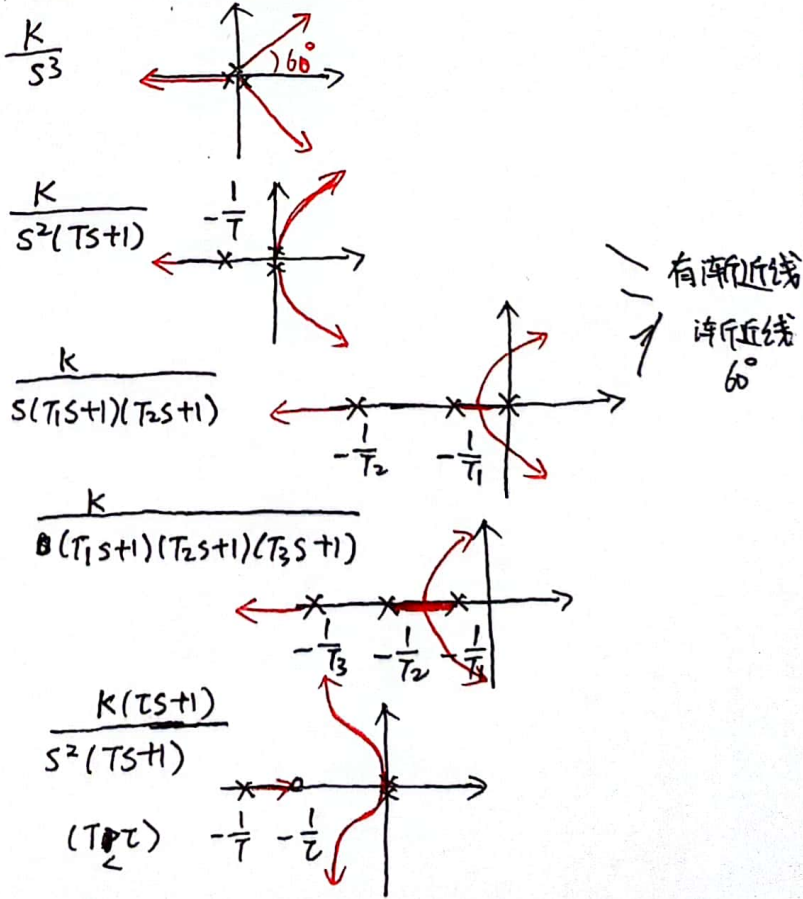 K
S³
60°
K
S²(TS+1)
-1/T
有渐近线
渐近线
60°
K
S(T₁S+1)(T₂S+1)
-1/T₂
-1/T₁
K
(T₁S+1)(T₂S+1)(T₃S+1)
-1/T₃
-1/T₂
-1/T₁
K(τS+1)
S²(TS+1)
(T<τ)
-1/T
-1/τ